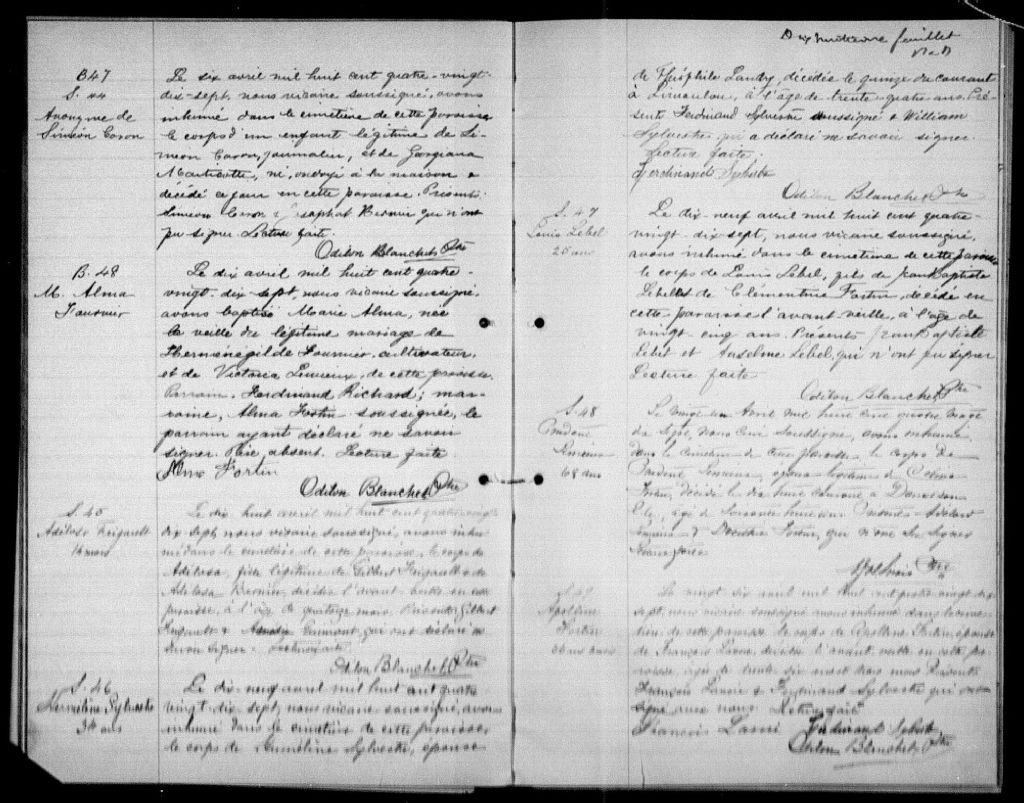 B47
S. 44
Anonyme de
Siméon Caron
Le six avril mil huit cent quatre-vingt-
dix-sept, nous vicaire soussigné, avons
inhumé dans le cimetière de cette paroisse
le corps d'un enfant légitime de Si-
méon Caron, journalier, et de Georgiana
Marticotte, né, ondoyé à la maison &
décédé ce jour en cette paroisse. Présents
Siméon Caron & Josaphat Bernier qui n'ont
pu signer. Lecture faite.
Odilon Blanchet Ptre
B. 48
M. Alma
Fournier
Le dix avril mil huit cent quatre-
vingt-dix-sept, nous vicaire soussigné,
avons baptisé Marie Alma, née
la veille du légitime mariage de
Herménégilde Fournier, cultivateur,
et de Victoria Lemieux, de cette paroisse.
Parrain, Ferdinand Richard; mar-
raine, Alma Fortin soussignée, le
parrain ayant déclaré ne savoir
signer. Père absent. Lecture faite
Alma Fortin
Odilon Blanchet Ptre
S. 45
Le dix-huit avril mil huit cent quatre-vingt-
dix sept nous vicaire soussigné, avons inhu-
mé dans le cimetière de cette paroisse, le corps de
fille légitime de Gilbert
Bernier, décédée l'avant veille en cette
paroisse, à l'âge de quatorze mois. Présents Gilbert
qui ont déclaré ne
savoir signer. Lecture faite
Odilon Blanchet Ptre
S. 46
Herméline Sylvestre
34 ans
Le dix-neuf avril mil huit cent quatre
vingt-dix-sept, nous vicaire soussigné, avons
inhumé dans le cimetière de cette paroisse,
le corps de Herméline Sylvestre, épouse
Dix huitième feuillet
de Théophile Landry, décédée le quinze du courant
à Limoulou, à l'âge de trente-quatre ans. Pré-
sents Ferdinand Sylvestre soussigné & William
Sylvestre qui a déclaré ne savoir signer
Lecture faite.
Ferdinand Sylvestre
Odilon Blanchet Ptre
S. 47
Louis Lebel
25 ans
Le dix-neuf avril mil huit cent quatre-
vingt-dix-sept, nous vicaire soussigné,
avons inhumé dans le cimetière de cette paroisse
le corps de Louis Lebel, fils de Jean Baptiste
Lebel et de Clémentine Fortin, décédé en
cette paroisse l'avant veille, à l'âge de
vingt-cinq ans. Présents Jean Baptiste
Lebel et Anselme Lebel, qui n'ont pu signer
Lecture faite
Odilon Blanchet Ptre
S. 48
68 ans
Le vingt-un Avril mil huit cent quatre vingt
dix sept, nous Curé soussigné, avons inhumé
dans le cimetière de cette paroisse le corps de
époux légitime de
décédé le dix huit courant à
âgé de soixante huit ans. Présents Adélard
Fortin, qui n'ont su signer
Lecture faite
Ptre
S. 49
Apolline
Fortin
Le vingt six avril mil huit cent quatre vingt dix
sept, nous vicaire soussigné avons inhumé dans le cime-
tière de cette paroisse le corps de Apolline Fortin, épouse
de François décédée l'avant veille en cette pa-
roisse, âgée de trente six ans et trois mois Présents
François & Ferdinand Sylvestre qui ont
signé avec nous. Lecture faite
François
Ferdinand Sylvestre
Odilon Blanchet Ptre